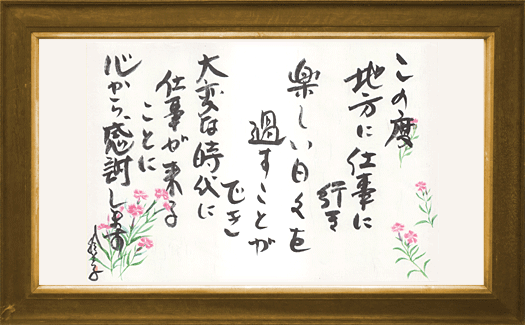 この度
地方に仕事に
行き
楽しい日々を
過すことが
でき
大変な時代に
仕事が来る
ことに
心から、感謝します